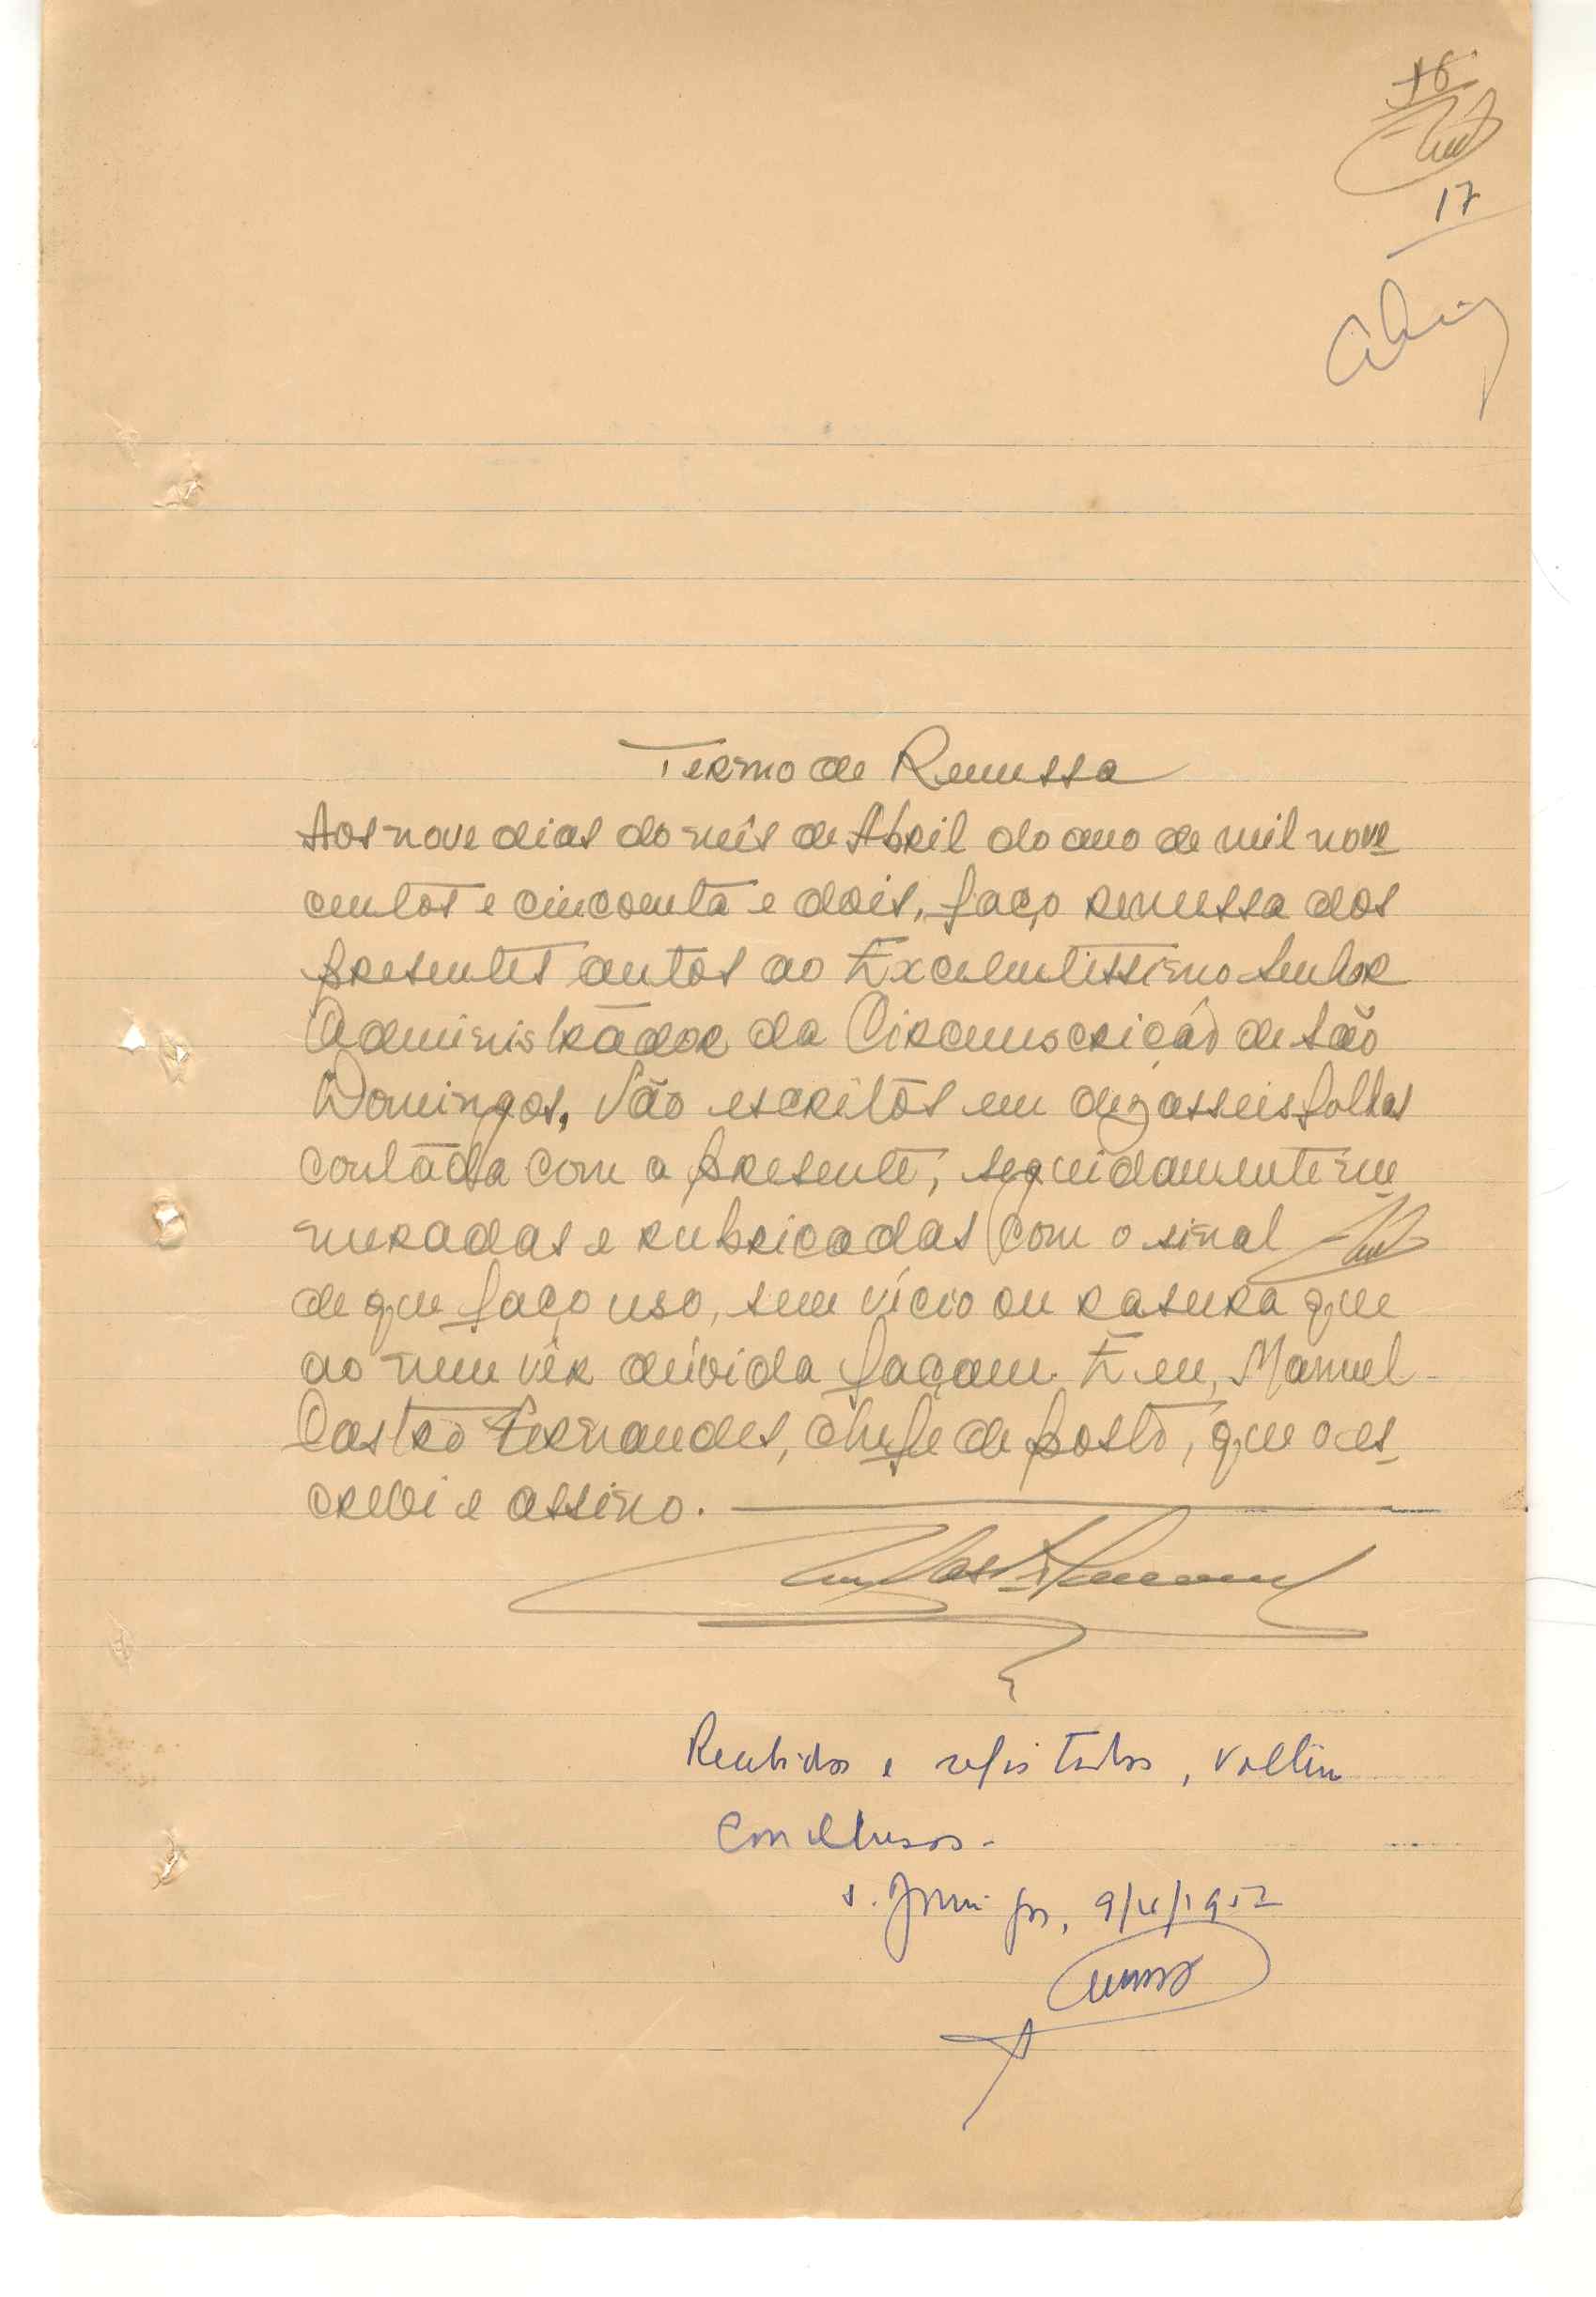 16
17
Termo de Remessa
Aos nove dias do mês de Abril do ano de mil nove
centos e cincoenta e dois, faço remessa dos
presentes autos ao Excelentissimo Senhor
Administrador da Circunscrição de São
Domingos. Vão escritos em dezasseis folhas
contada com a presente, seguidamente nu
meradas e rubricadas com o sinal
de que faço uso, sem vício ou rasura que
ao nem vêr dúvida façam. E eu, Manuel
Castro Fernandes, chefe de posto, que o es
crevi e assino.
Recebidos e registados, voltem
conclusos.
S. Domingos, 9/4/1952